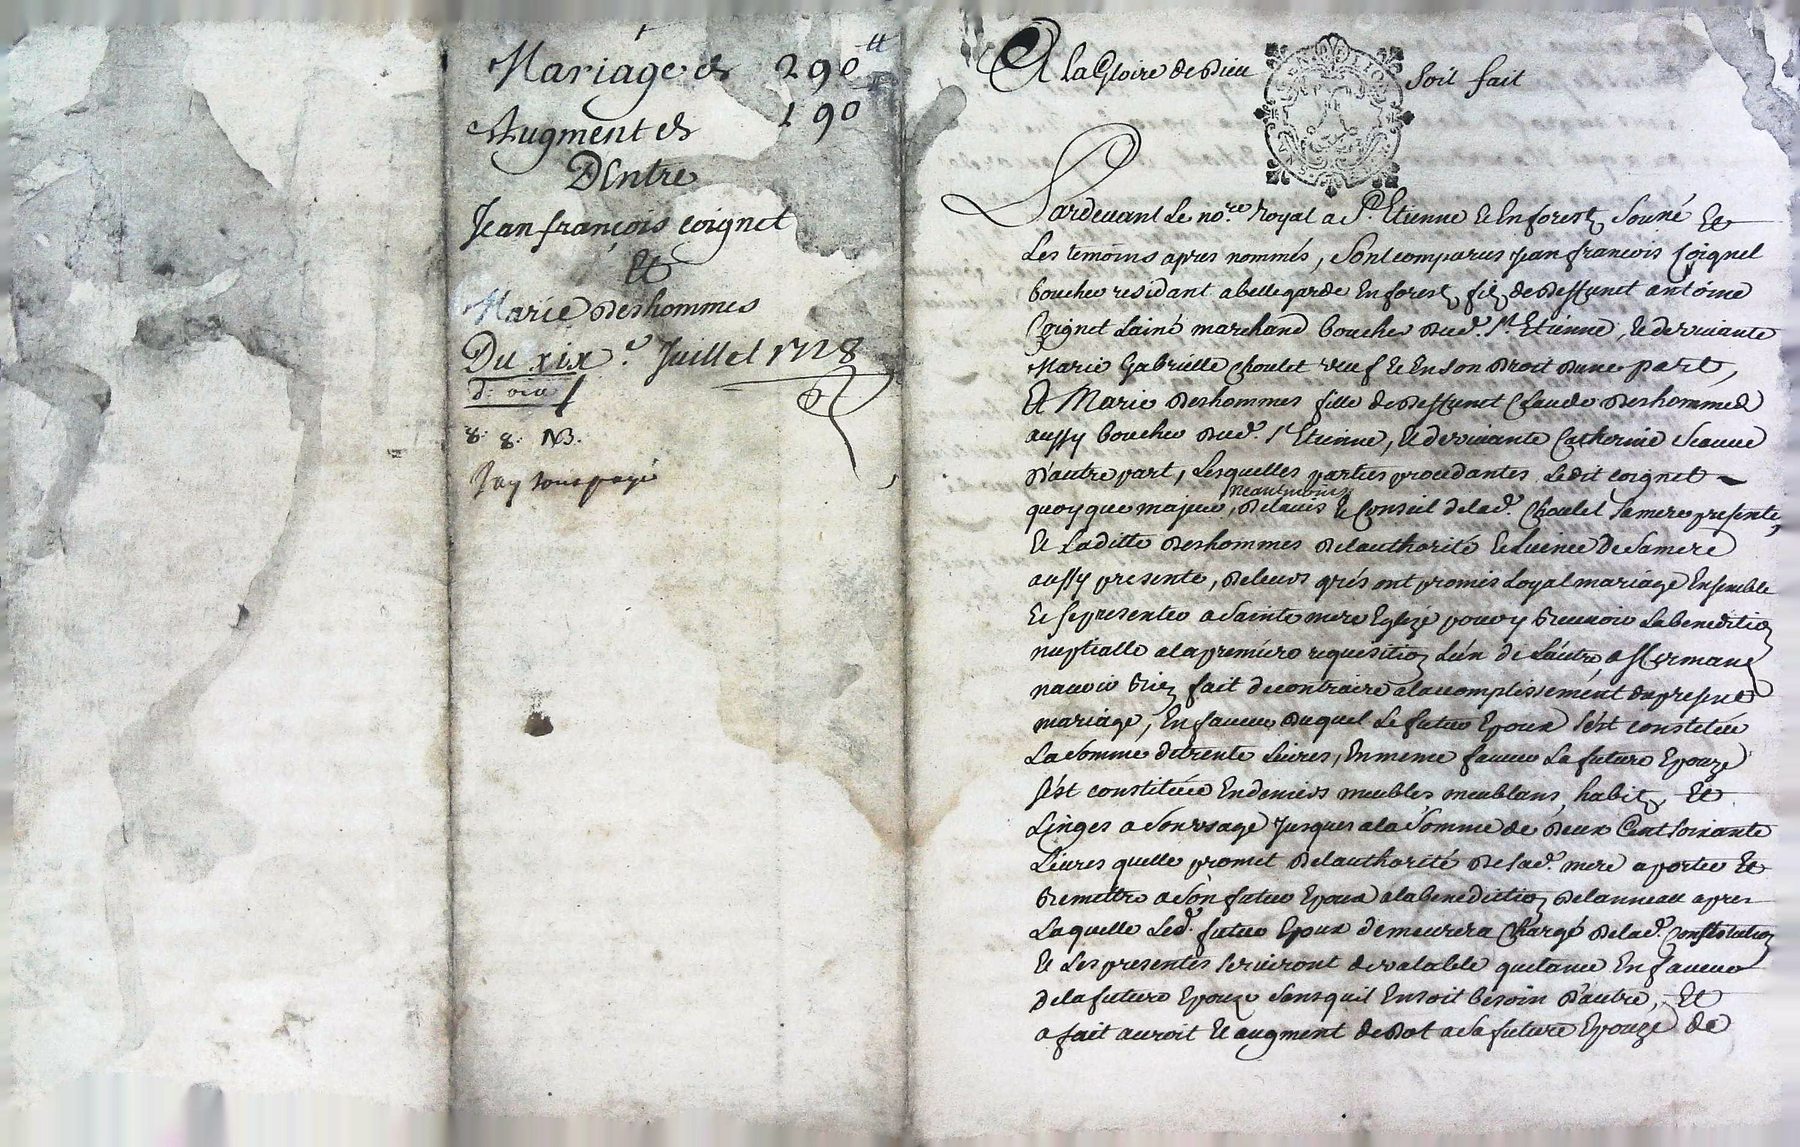 Mariage de 290 ₶
Augment de 190
D'Entre
Jean françois coignet
Et
Marie Deshommes
Du xix.e Juillet 1728
8. 8. NB.
J'ay tous payé
A la Gloire de Dieu soit fait
Pardevant Le no.re royal a S.t Etienne Et En forest souné Et
Les temoins apres nommés, sont comparus Jean francois Coignet
boucher residant a bellegarde En forest, filz de deffunct antoine
Coignet Lainé marchand boucher dud. S.t Etienne, Et de vivante
Marie Gabrielle Choulet veuf Et En son droit dune part,
Et Marie Deshommes fille de deffunct Claude Deshommes
aussy boucher dud. S.t Etienne, Et de vivante Catherine
D'autre part, Lesquelles parties procedantes Ledit coignet
quoyque majeur, neantmoins de lavis Et Conseil de lad. Choulet sa mere presente,
Et Laditte Deshommes de lauthorité Et Licence De sa mere
aussy presente, de leurs grés ont promis Loyal mariage Ensemble
Et se presenter a Sainte mere Eglize pour y recevoir La benediction
nuptialle a la premiere requisition Lun de Lautre, affirmans
navoir rien fait de contraire a laccomplissement du present
mariage, En faveur duquel Le futur Epoux s'est constitué
La somme de trente Livres, En meme faveur La future Epouze
s'est constituée En deniers meubles meublans, habitz, Et
Linges a son usage jusques a la somme de deux Cent soixante
Livres quelle promet de lauthorité de sad. mere aporter Et
remettre a son futur Epoux a la benediction de lanneau apres
Laquelle Led. futur Epoux demeurera Chargé de lad. Constitution
Et Les presentes serviront de valable quitance En faveur
de la future Epouze sans quil En soit besoin D'autre, Et
a fait accroit Et augment de dot a sa future Epouze de